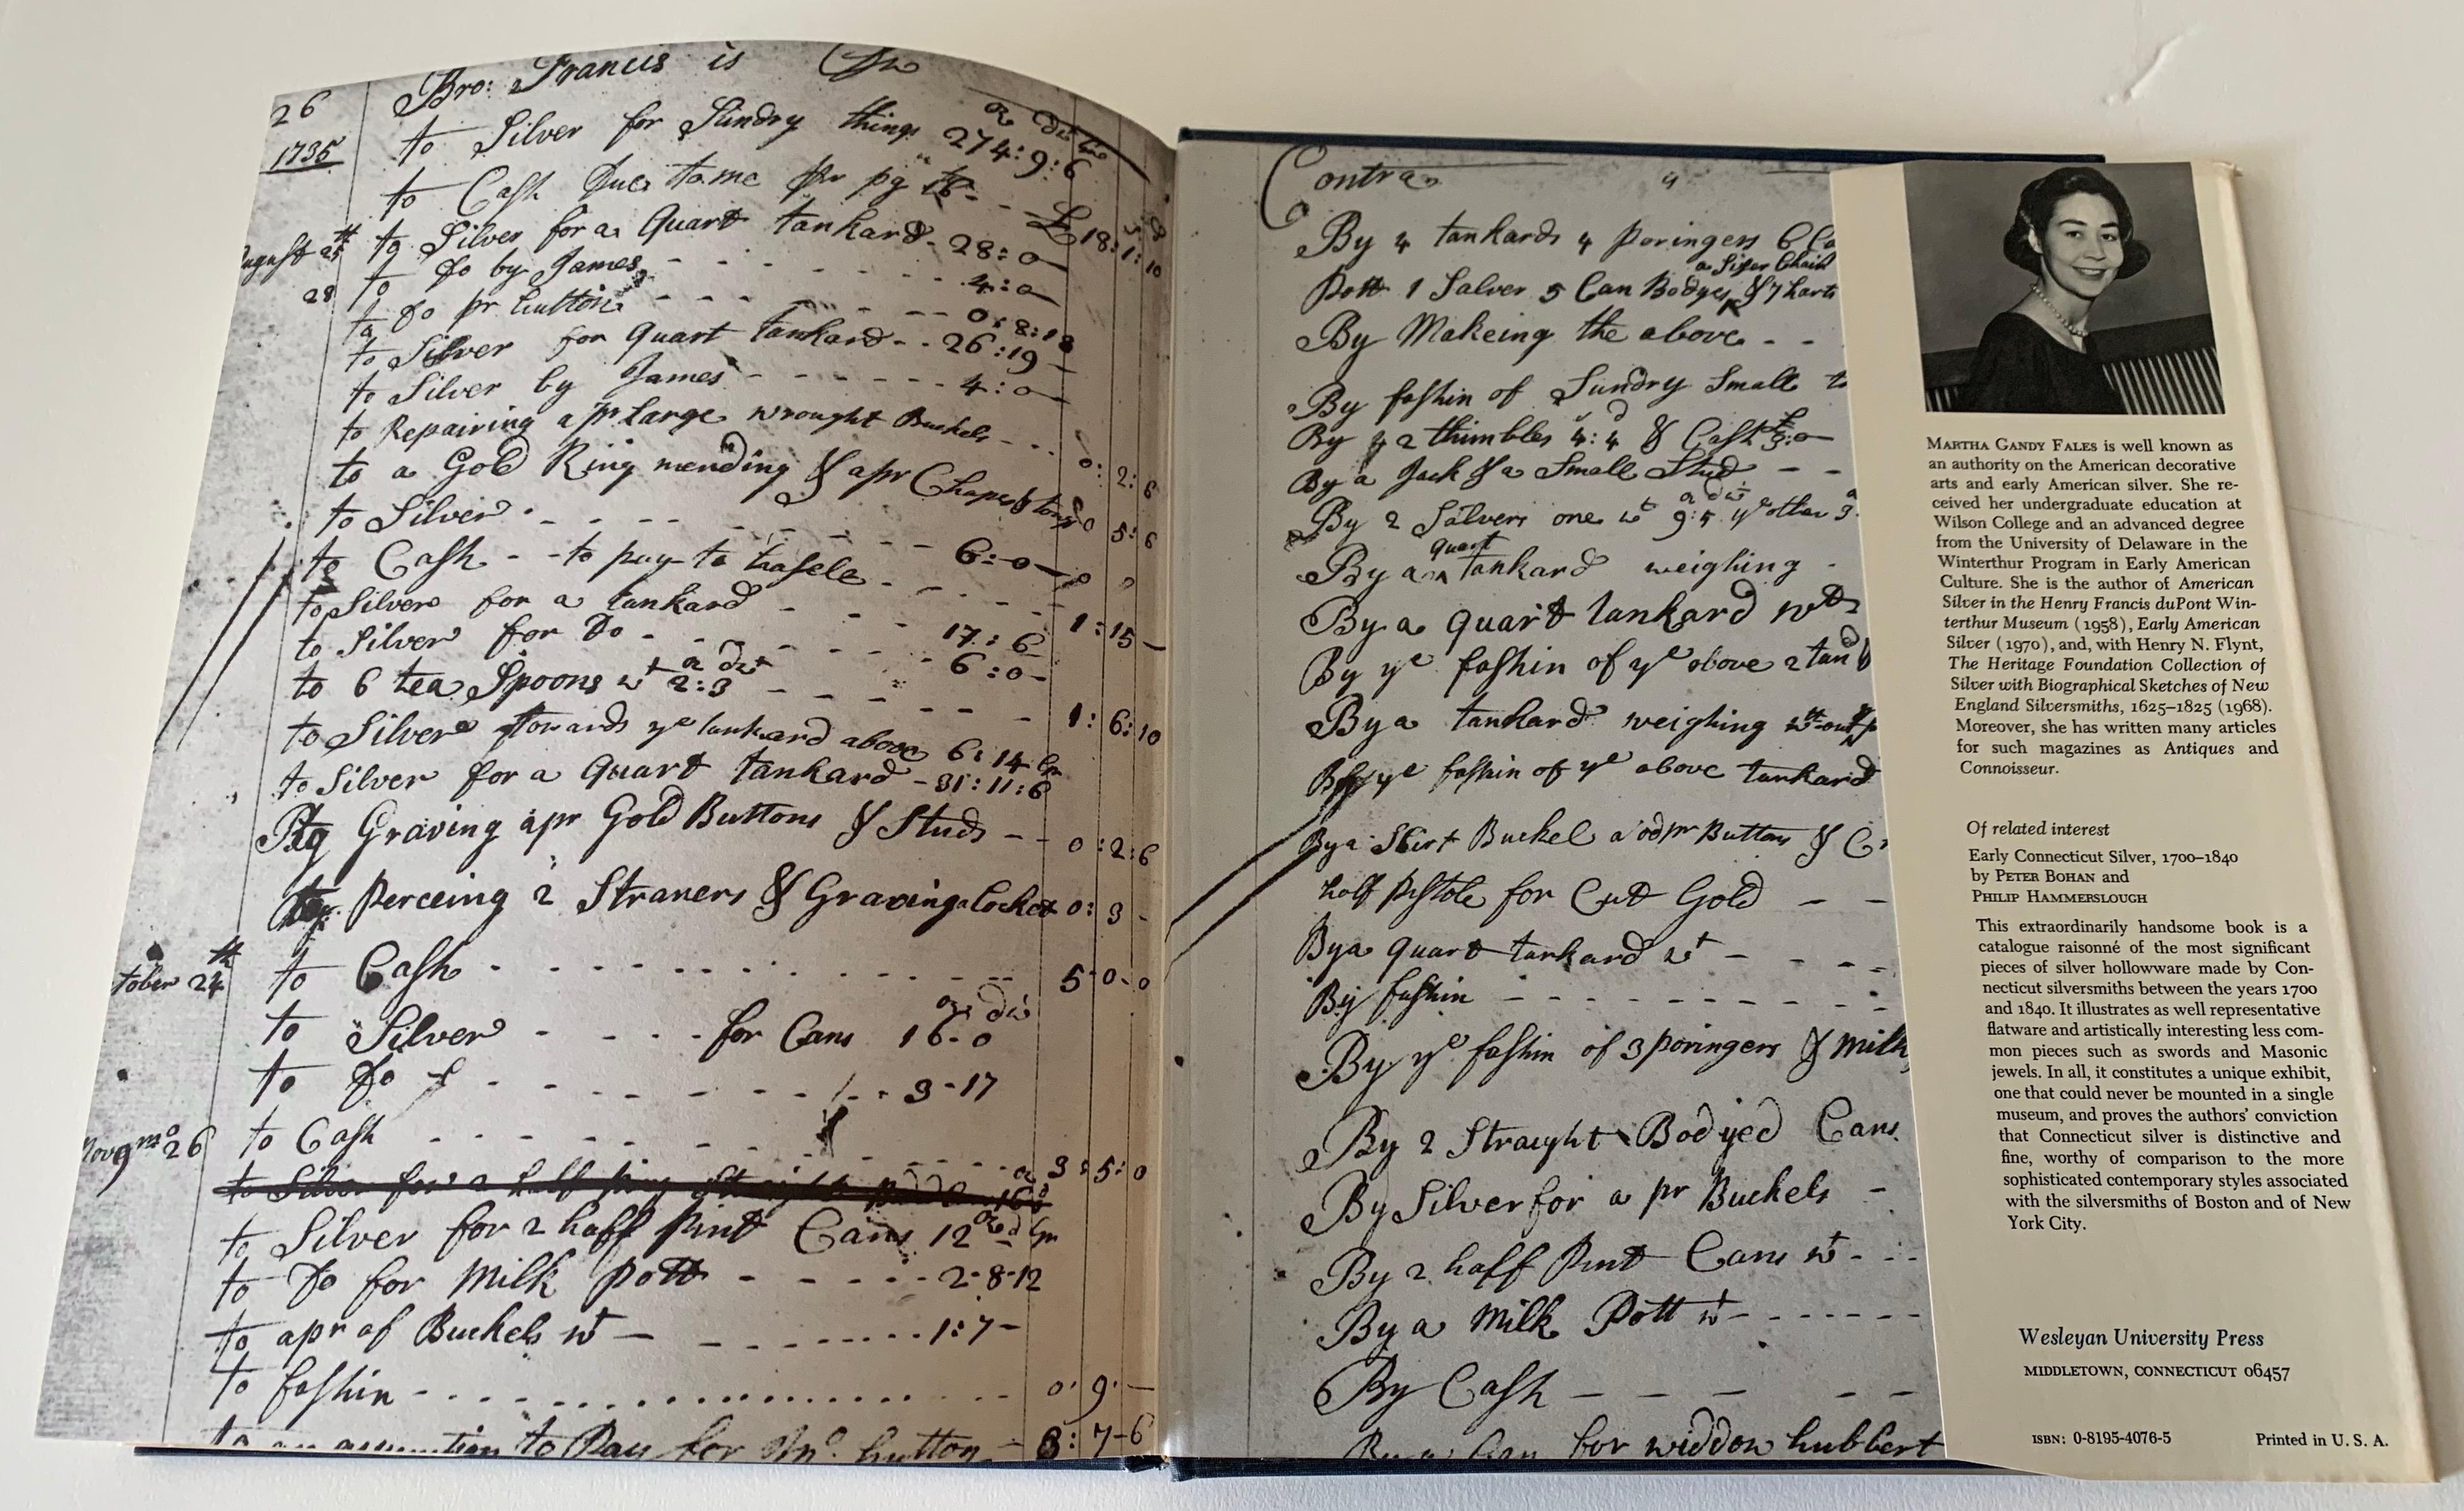 26
Bro: Francis is
1735
to Silver for Sundry things 274:9:6
to Cash Due to me pr pg 18:1:10
August 25th to Silver for a Quart tankard - 28:0
to Do by James - - - 4:0
28 to Do pr hutton - - - 0:8:18
to Silver for Quart tankard - - 26:19 -
to Silver by James - - - 4:0
to Repairing a pr Large wrought Buckels - - 0:2:6
to a Gold Ring mending & a pr Chapes & 0 5:6
to Silver - - - 6:0
to Cash - - to pay to
to Silver for a tankard - - - 1:15 -
to Silver for Do - - - 17:6
6:0
to 6 tea Spoons wt 2:3 - - - 1:6:10
to Silver towards ye tankard above 6:14
to Silver for a Quart tankard - 31:11:6
Graving a pr Gold Buttons & Studs - - 0:2:6
Perceing 2 Straners & Graving a Locket 0:3 -
to Cash - - - 5-0-0
tober 24th
oz dwt
to Silver - - - for Cans 16-0
to Do - - - 3-17
26 to Cash - - - 3:5:0
to Silver for 2 half pint Cans 12
to Do for Milk Pott - - - 2-8-12
to a pr of Buckels wt - - - 1:7-
to fashin - - - 0:9:-
to an assumtion to Pay for hutton - 8:7-6
Contra
By 4 tankards 4 Poringers 6
a Silver Chain
Pott 1 Salver 5 Can Bodyes & 7 harts
By Makeing the above - -
By fashin of Sundry Small
By 2 thimbles 4:4 & Cash
By a Jack & a Small Stud - -
By 2 Salvers one wt 9:5 ye other 9
Quart
By a tankard weighing -
By a quart tankard wt
By ye fashin of ye above 2 tank
By a tankard weighing without
By ye fashin of ye above tankard
By a Shirt Buckel a Gold pr Buttons &
half Pistole for Cut Gold - -
By a quart tankard wt - - - -
By fashin - - -
By ye fashin of 3 Poringers & Milk
By 2 Straight Bodyed Cans
By Silver for a pr Buckels -
By 2 half Pint Cans wt - - -
By a Milk Pott wt - - -
By Cash - - - - -
for widdow hubbert
MARTHA GANDY FALES is well known as
an authority on the American decorative
arts and early American silver. She re-
ceived her undergraduate education at
Wilson College and an advanced degree
from the University of Delaware in the
Winterthur Program in Early American
Culture. She is the author of American
Silver in the Henry Francis duPont Win-
terthur Museum (1958), Early American
Silver (1970), and, with Henry N. Flynt,
The Heritage Foundation Collection of
Silver with Biographical Sketches of New
England Silversmiths, 1625–1825 (1968).
Moreover, she has written many articles
for such magazines as Antiques and
Connoisseur.
Of related interest
Early Connecticut Silver, 1700–1840
by PETER BOHAN and
PHILIP HAMMERSLOUGH
This extraordinarily handsome book is a
catalogue raisonné of the most significant
pieces of silver hollowware made by Con-
necticut silversmiths between the years 1700
and 1840. It illustrates as well representative
flatware and artistically interesting less com-
mon pieces such as swords and Masonic
jewels. In all, it constitutes a unique exhibit,
one that could never be mounted in a single
museum, and proves the authors' conviction
that Connecticut silver is distinctive and
fine, worthy of comparison to the more
sophisticated contemporary styles associated
with the silversmiths of Boston and of New
York City.
Wesleyan University Press
MIDDLETOWN, CONNECTICUT 06457
ISBN: 0-8195-4076-5 Printed in U. S. A.